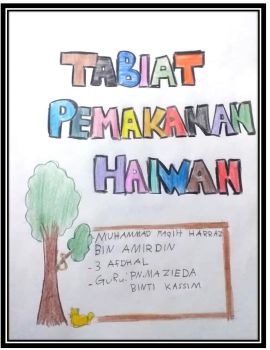 TABIAT
PEMAKANAN
HAIWAN
- MUHAMMAD FAQIH HARRAZ
BIN AMIRDIN
- 3 AFDHAL
- GURU: PN.MAZIEDA
BINTI KASSIM